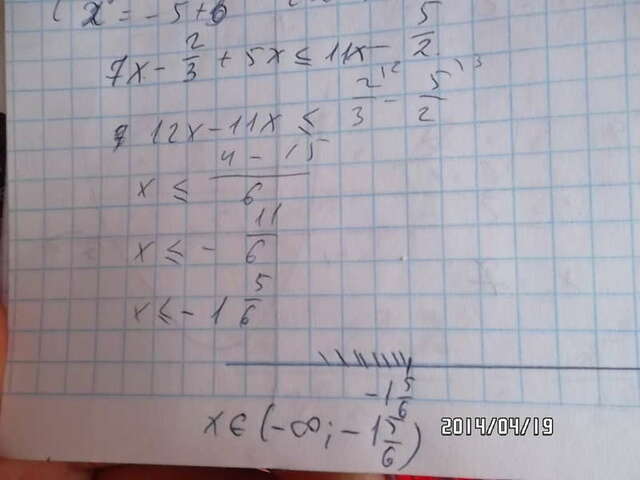 x = -5+6
7x - 2/3 + 5x ≤ 11x - 5/2
12x - 11x ≤ 2/3 - 5/2
x ≤ (4 - 15)/6
x ≤ - 11/6
x ≤ - 1 5/6
-1 5/6
x ∈ (-∞; -1 5/6)
2014/04/19